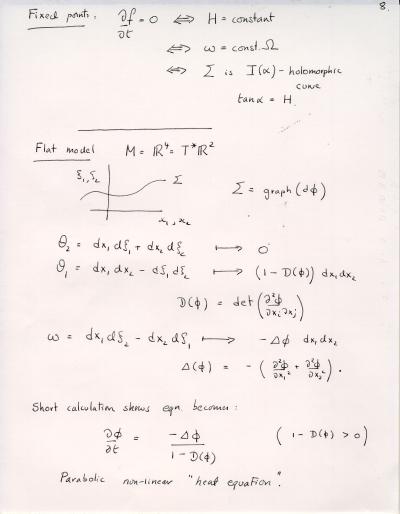 8.
Fixed points: ∂f/∂t = 0 ⟺ H = constant
⟺ ω = const. Ω
⟺ Σ is I(α) – holomorphic
curve
tan α = H.
Flat model M = ℝ⁴ = T*ℝ²
ξ₁, ξ₂
Σ
Σ = graph (dφ)
x₁, x₂
θ₂ = dx₁ dξ₁ + dx₂ dξ₂ ⟼ 0
θ₁ = dx₁ dx₂ – dξ₁ dξ₂ ⟼ (1 – D(φ)) dx₁ dx₂
D(φ) = det (∂²φ/∂xᵢ ∂xⱼ)
ω = dx₁ dξ₂ – dx₂ dξ₁ ⟼ –Δφ dx₁ dx₂
Δ(φ) = – (∂²φ/∂x₁² + ∂²φ/∂x₂²).
Short calculation shows eqn. becomes:
∂φ/∂t = –Δφ / 1 – D(φ) (1 – D(φ) > 0)
Parabolic non-linear "heat equation".